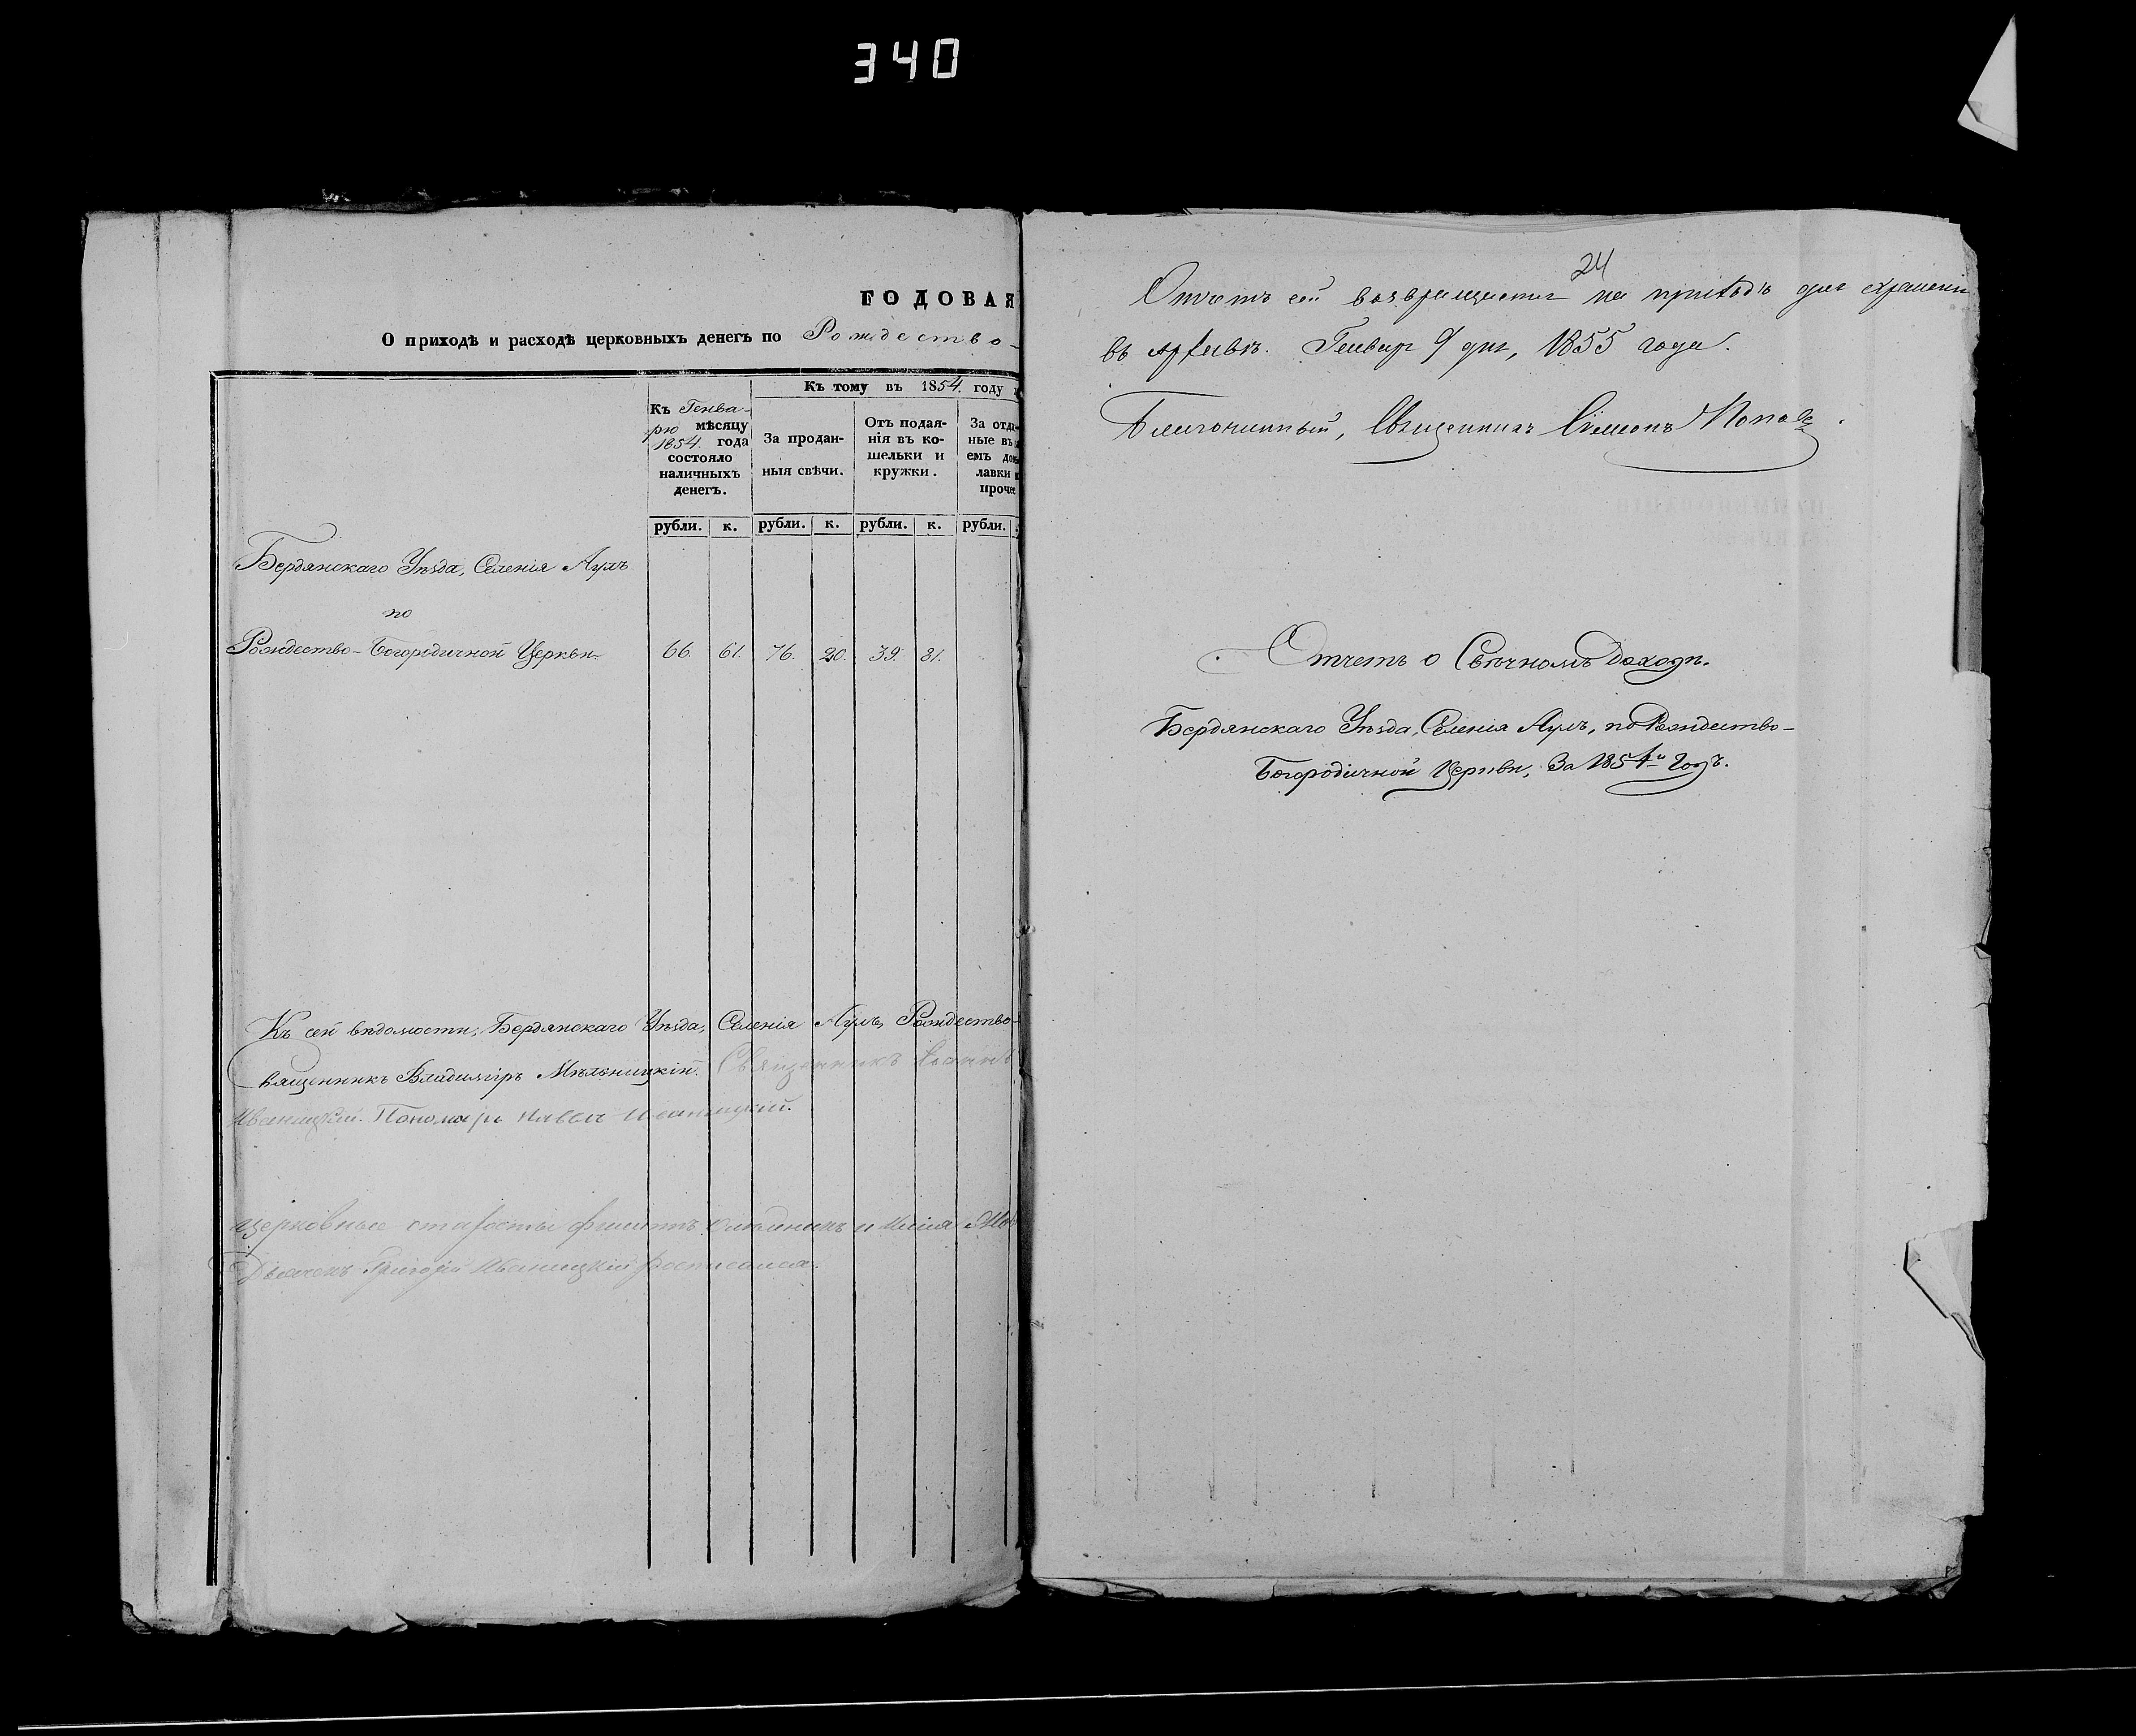 340
ГОДОВАЯ
О приходѣ и расходѣ церковныхъ денегъ по Рождество-
Къ тому въ 1854. году
Къ Генва-
рю мѣсяцу
1854. года
состояло
наличныхъ
денегъ.
За продан-
ныя свѣчи.
Отъ подая-
нія въ ко-
шельки и
кружки.
За отда-
ные въ
емъ
лавки
прочее
рубли. к. рубли. к. рубли. к. рубли.
Бердянскаго Уѣзда, Селенія Аулъ
по
Рождество-Богородичной Церкви. 66. 61. 76. 20. 39. 81.
Къ сей вѣдомости, Бердянскаго Уѣзда, Селенія Аулъ, Рождество-
Священникъ Владиміръ Мѣльницкій. Священникъ Іоаннъ
Иваницкій. Пономарь Павелъ Иваницкій.
Церковные старосты и
Дьячекъ Григорій Иваницкій росписался.
24
Отчетъ сей возвращается на приходъ для храненія
въ архивѣ. Генваря 9 дня, 1855 года.
Благочинный, Священникъ Сімеонъ Поповъ.
Отчетъ о Свѣчномъ доходѣ.
Бердянскаго Уѣзда, Селенія Аулъ, по Рождество-
Богородичной Церкви, За 1854й Годъ.